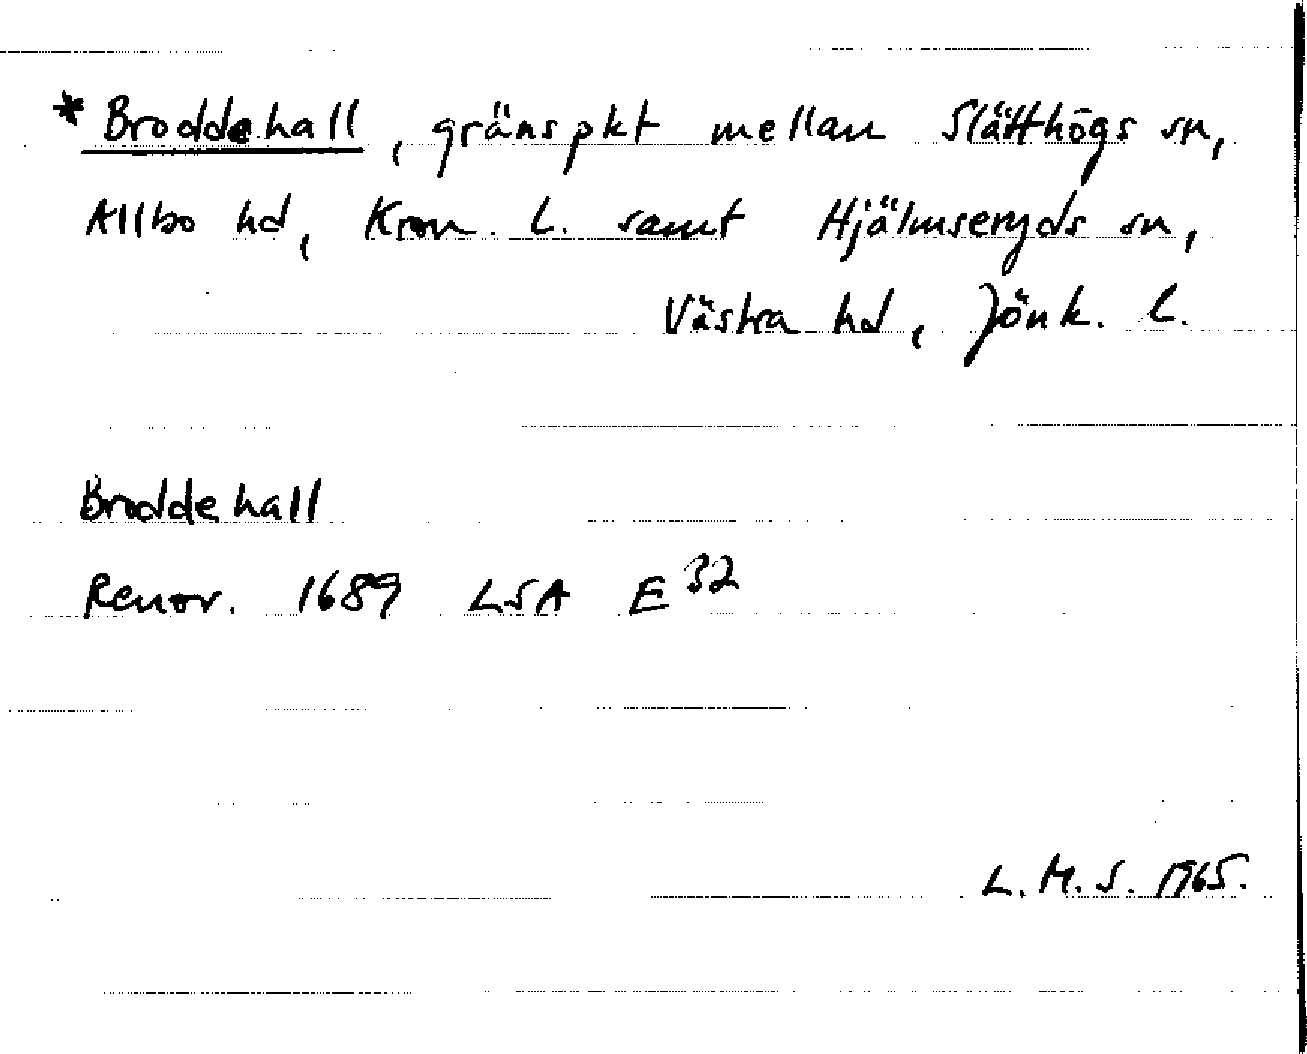 * Broddehall, gränspkt mellan Slätthögs sn,
Allbo hd, Kron. l. samt Hjälmseryds sn,
Västra hd, Jönk. l.
Broddehall
Renov. 1689 LSA E 32
L.M.S. 1965.